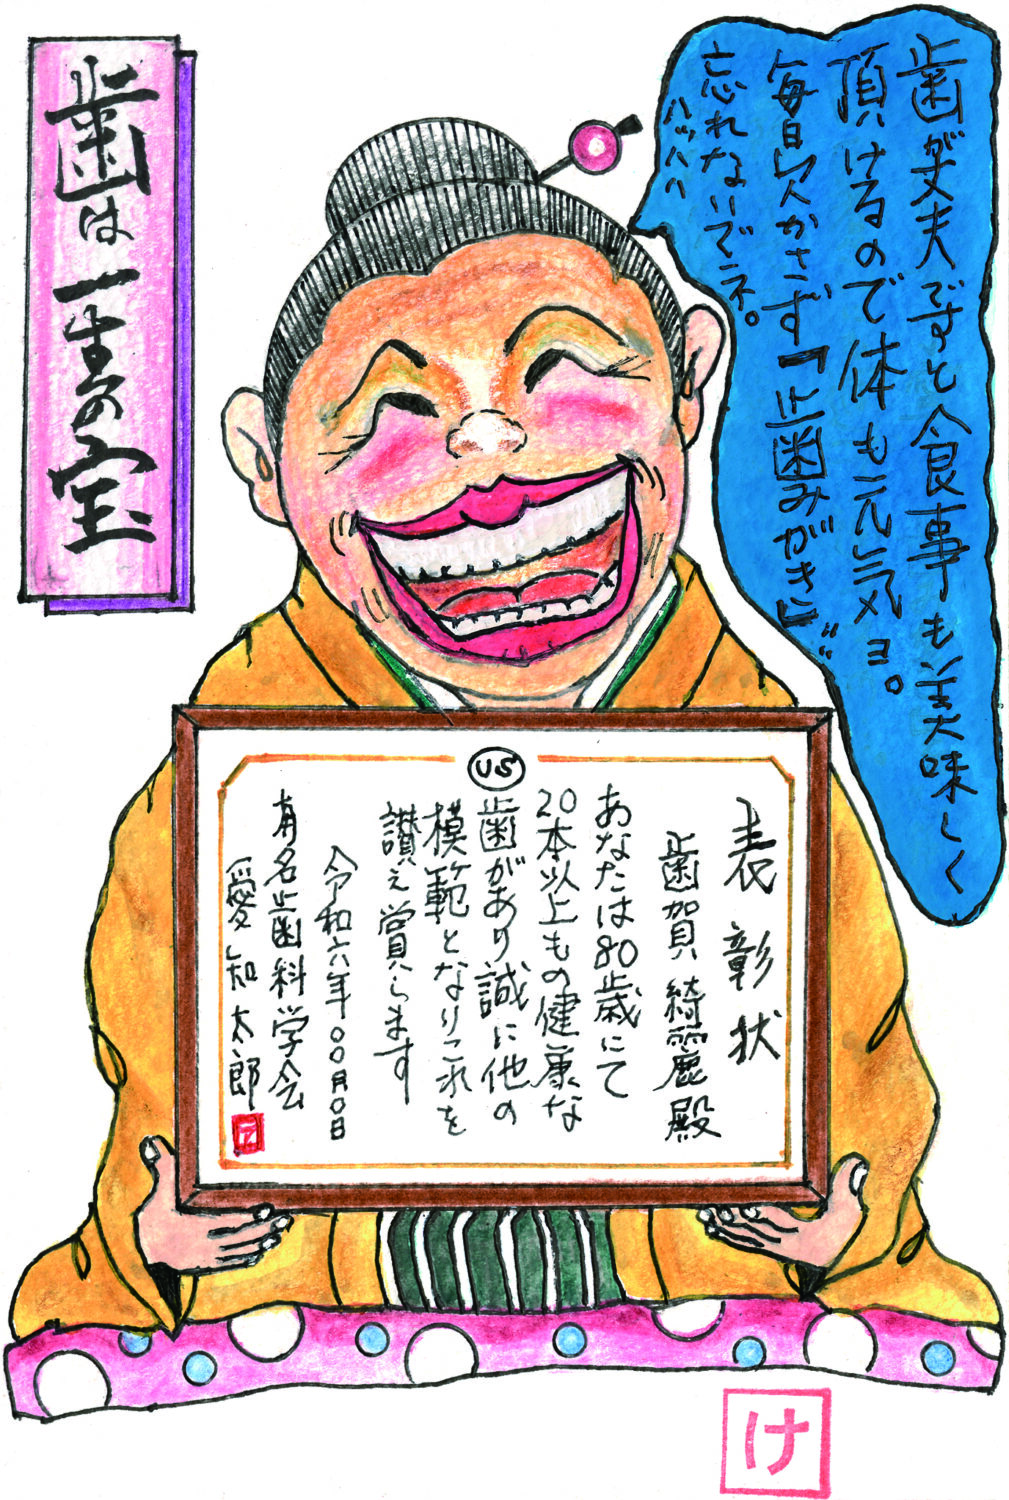 歯が丈夫ですと食事も美味しく
頂けるので体も元気ョ。
毎日欠かさず『歯みがき』
忘れないでネ。
ハッハハ
歯は一生の宝
表彰状
歯賀 綺麗 殿
あなたは80歳にて
20本以上もの健康な
歯があり誠に他の
模範となりこれを
讃え賞します
令和六年00月0日
有名歯科学会
愛知太郎
け